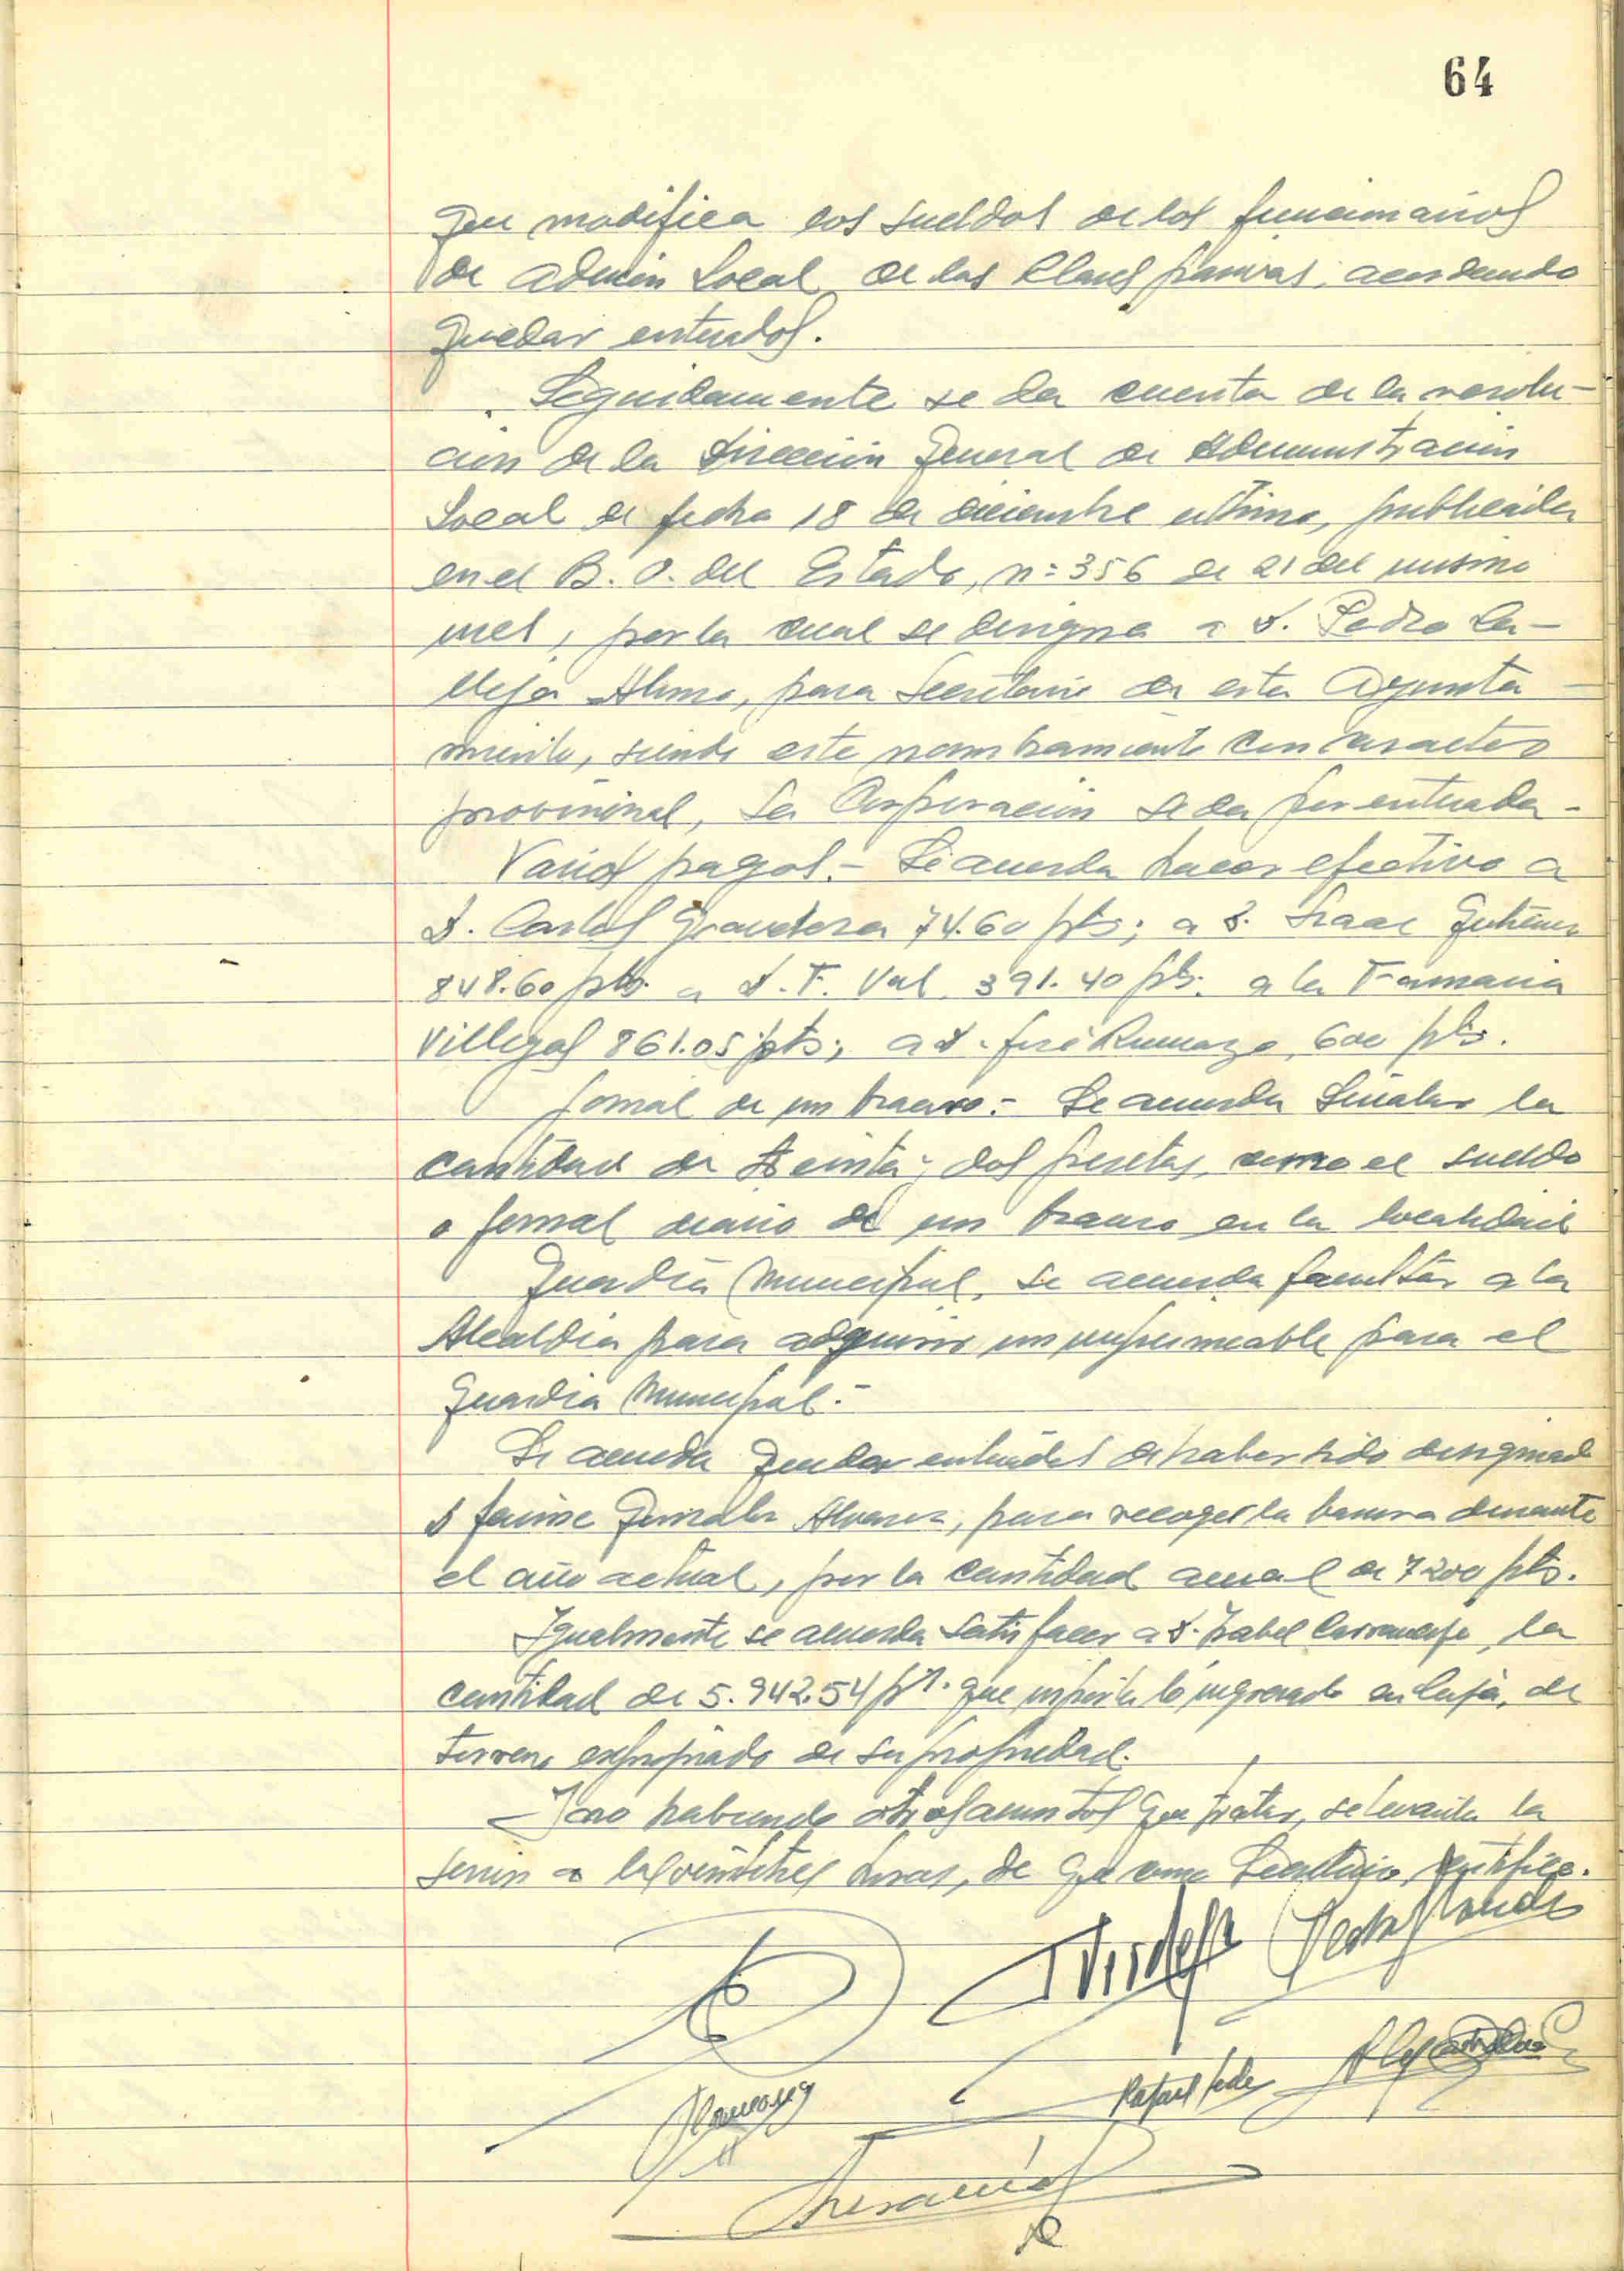 64
que modifica los sueldos de los funcionarios
de Admón Local de las Clases pasivas, acordando
quedar enterados.
Seguidamente se da cuenta de la resolu-
ción de la Dirección General de Administración
Local de fecha 18 de diciembre último, publicada
en el B. O. del Estado, nº 356 de 21 del mismo
mes, por la cual se designa a D. Pedro Ca-
lleja Alonso, para Secretario de este Ayunta-
miento, siendo este nombramiento con caracter
provisional, La Corporación se da por enterada.-
Varios pagos.- Se acuerda hacer efectivo a
D. Carlos 74.60 pts; a D. Isaac Gutiérrez
848.60 pts. a D. F. Val. 391.40 pts. a la Farmacia
Villegas 861.05 pts; a D. José Rumazo, 600 pts.
Jornal de un bracero.- Se acuerda Señalar la
cantidad de treinta y dos pesetas, como el sueldo
o jornal diario de un bracero en la localidad
Guardia Municipal, se acuerda facultar a la
Alcaldía para adquirir un impermeable para el
Guardia Municipal.-
Se acuerda quedar enterados de haber sido designado
D Jaime González Alvarez, para recoger la basura durante
el año actual, por la cantidad anual de 7200 pts.
Igualmente se acuerda satisfacer a D. Isabel Carrancejo, la
cantidad de 5.942.54 pts. que importa lo ingresado en Caja, de
terreno expropiado de su propiedad.
Y no habiendo otros asuntos que tratar, se levanta la
sesión a las veintitres horas, de que como Secretario, certifico.
Rafael